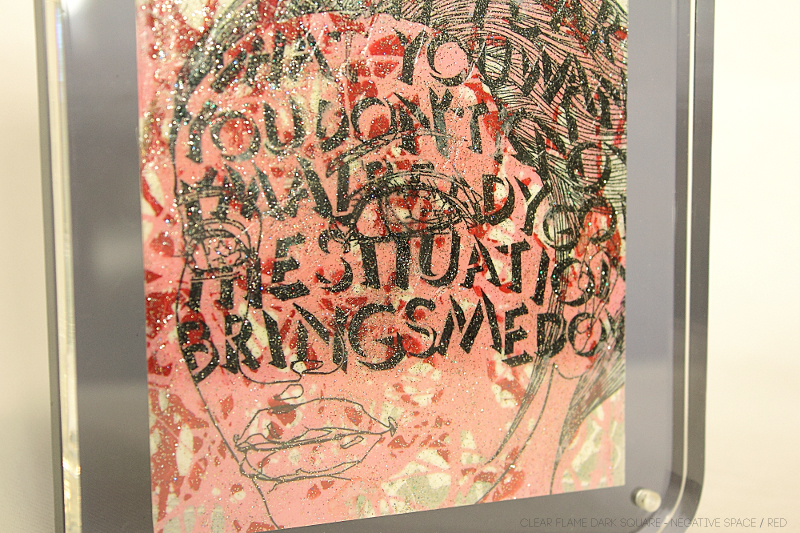 WHAT YOU WAN
YOU DON'T
ALREADY GO
THE SITUATION
BRINGS ME DOW
CLEAR FLAME DARK SQUARE - NEGATIVE SPACE / RED